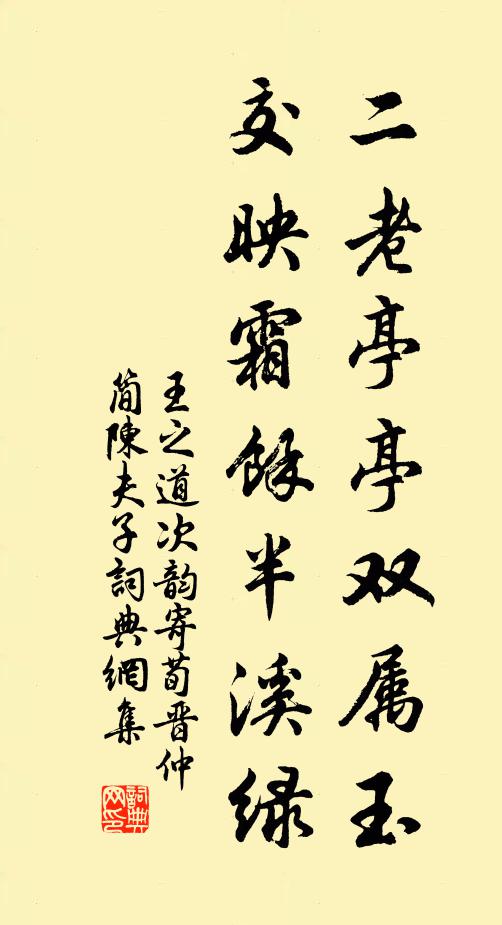 二老亭亭双属玉
交映霜餘半溪绿
王之道次韵寄荀晋仲
简陳夫子詞典網集
詞典网印